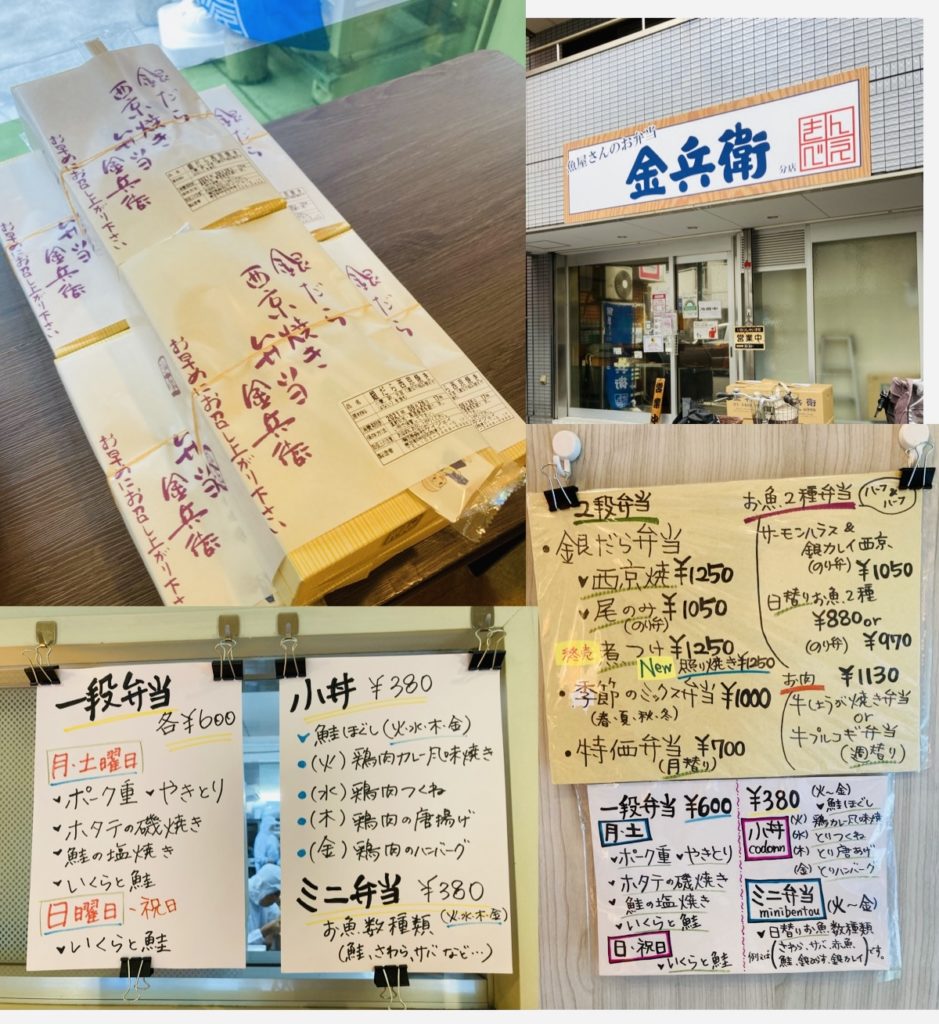 銀だら
西京焼き
弁当
金兵衛
お早めにお召し上がり下さい
銀だら
西京焼き
弁当
金兵衛
お早めにお召し上がり下さい
弁当
金兵衛
お早めにお召し上がり下さい
だら
弁当
金兵衛
お早めにお召し上がり下さい
魚屋さんのお弁当
金兵衛
分店
営業中
2段弁当
・銀だら弁当
西京焼 ¥1250
尾のみ ¥1050
(のり弁)
終売 煮つけ ¥1250
New 照り焼き¥1250
・季節のミックス弁当 ¥1000
(春・夏・秋・冬)
・特価弁当 ¥700
(月替り)
お魚2種弁当 ハーフ&ハーフ
サーモンハラス&
銀カレイ西京、
(のり弁) ¥1050
日替りお魚2種
¥880or
(のり弁) ¥970
お肉 ¥1130
牛しょうが焼き弁当
or
牛プルコギ弁当
(週替り)
一段弁当
各¥600
月・土曜日
ポーク重 やきとり
ホタテの磯焼き
鮭の塩焼き
いくらと鮭
日曜日・祝日
いくらと鮭
小丼 ¥380
鮭ほぐし(火・水・木・金)
・(火)鶏肉カレー風味焼き
・(水)鶏肉つくね
・(木)鶏肉の唐揚げ
・(金)鶏肉のハンバーグ
ミニ弁当 ¥380
お魚数種類(火・水・木・金)
(鮭、さわら、サバなど…)
一段弁当 ¥600
月・土
ポーク重 やきとり
ホタテの磯焼き
鮭の塩焼き
いくらと鮭
日・祝日
いくらと鮭
¥380 (火〜金)
鮭ほぐし
小丼
codonn
(火)鶏カレー風味焼
(水)とりつくね
(木)とり唐あげ
(金)とりハンバーグ
ミニ弁当
minibentou
(火〜金)
日替りお魚数種類
例えば(さわら、サバ、赤魚
鮭、銀がす、銀カレイ)です。